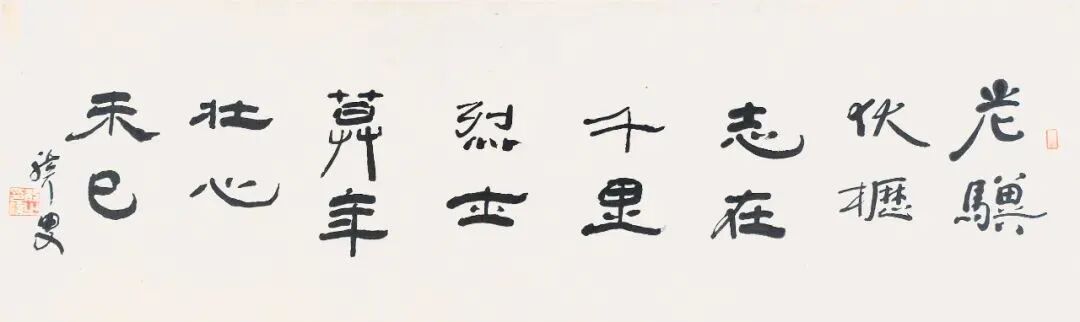 老驥
伏櫪
志在
千里
烈士
暮年
壯心
未已
叟